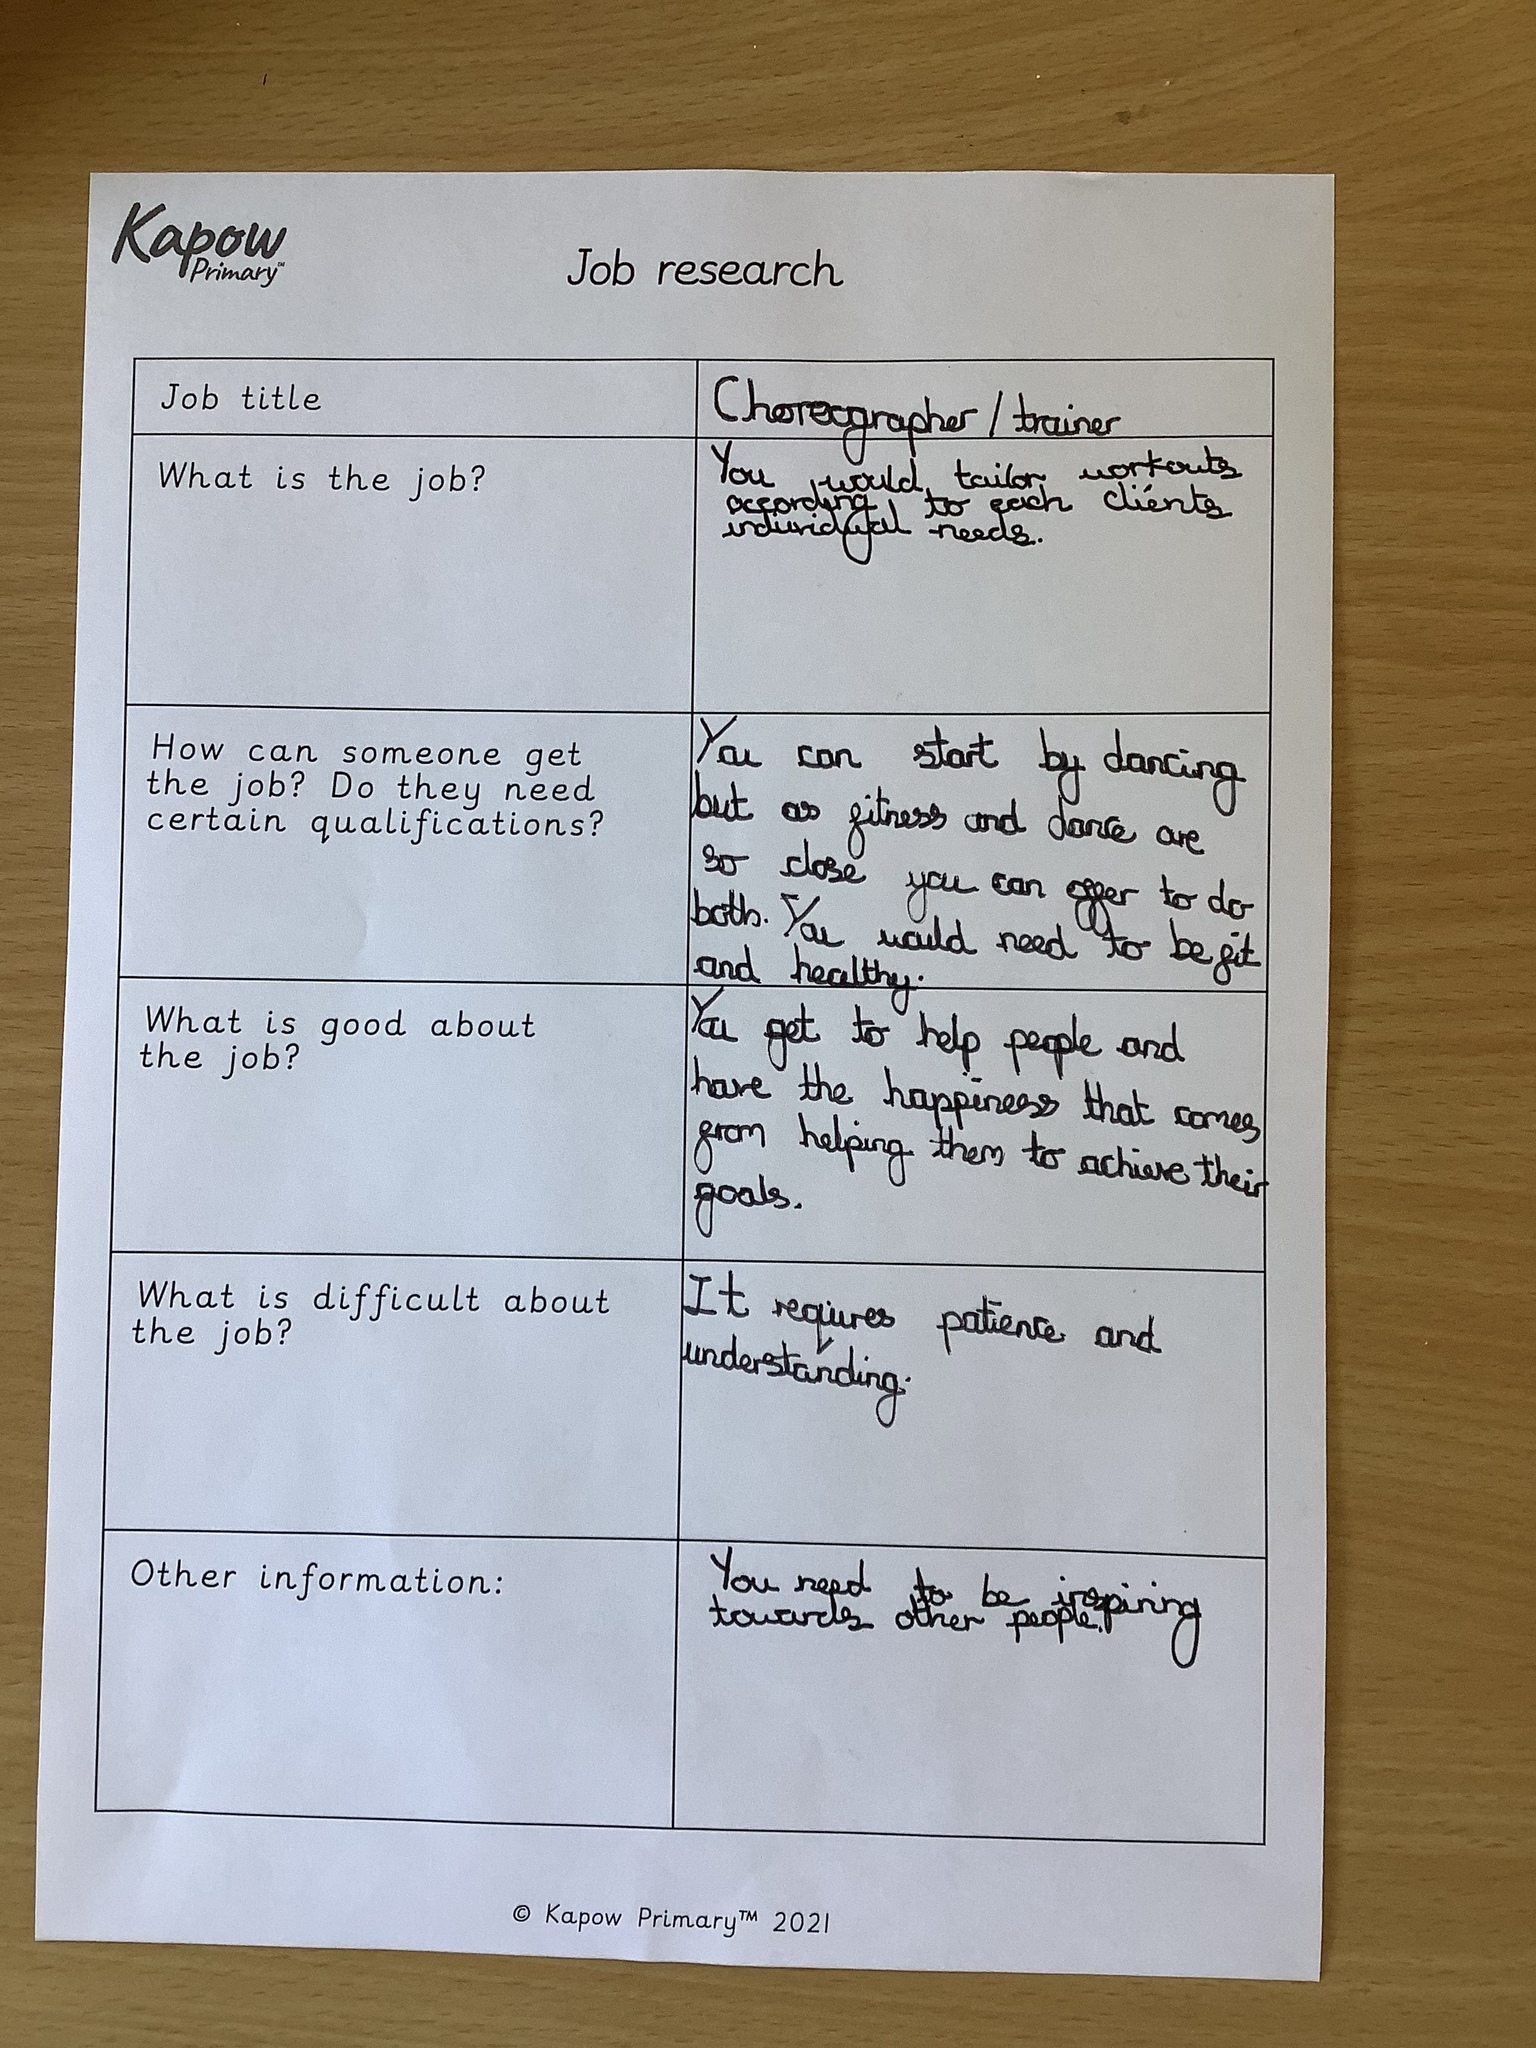 Kapow
Primary™
Job research
Job title
Choreographer / trainer
What is the job?
You would tailor workouts
according to each clients
individual needs.
How can someone get
the job? Do they need
certain qualifications?
You can start by dancing
but as fitness and dance are
so close you can offer to do
both. You would need to be fit
and healthy.
What is good about
the job?
You get to help people and
have the happiness that comes
from helping them to achieve their
goals.
What is difficult about
the job?
It requires patience and
understanding.
Other information:
You need to be inspiring
towards other people.
© Kapow Primary™ 2021